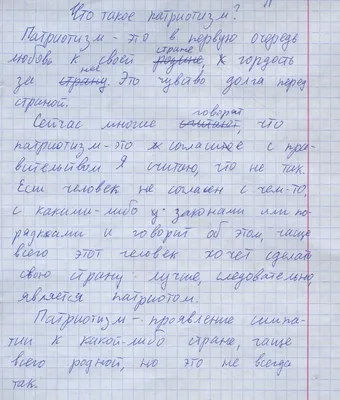 Что такое патриотизм?
Патриотизм - это в первую очередь
стране
любовь к своей родине, к гордость
нее
за страну. Это чувство долга перед
страной.
говорят
Сейчас многие считают, что
патриотизм - это согласие с пра-
вительством Я считаю, что не так.
Если человек не согласен с чем-то,
с какими-либо законами или по-
рядками и говорит об этом, чаще
всего этот человек хочет сделать
свою страну лучше, следовательно,
является патриотом.
Патриотизм - проявление симпа-
тии к какой-либо стране, чаще
всего родной, но это не всегда
так.